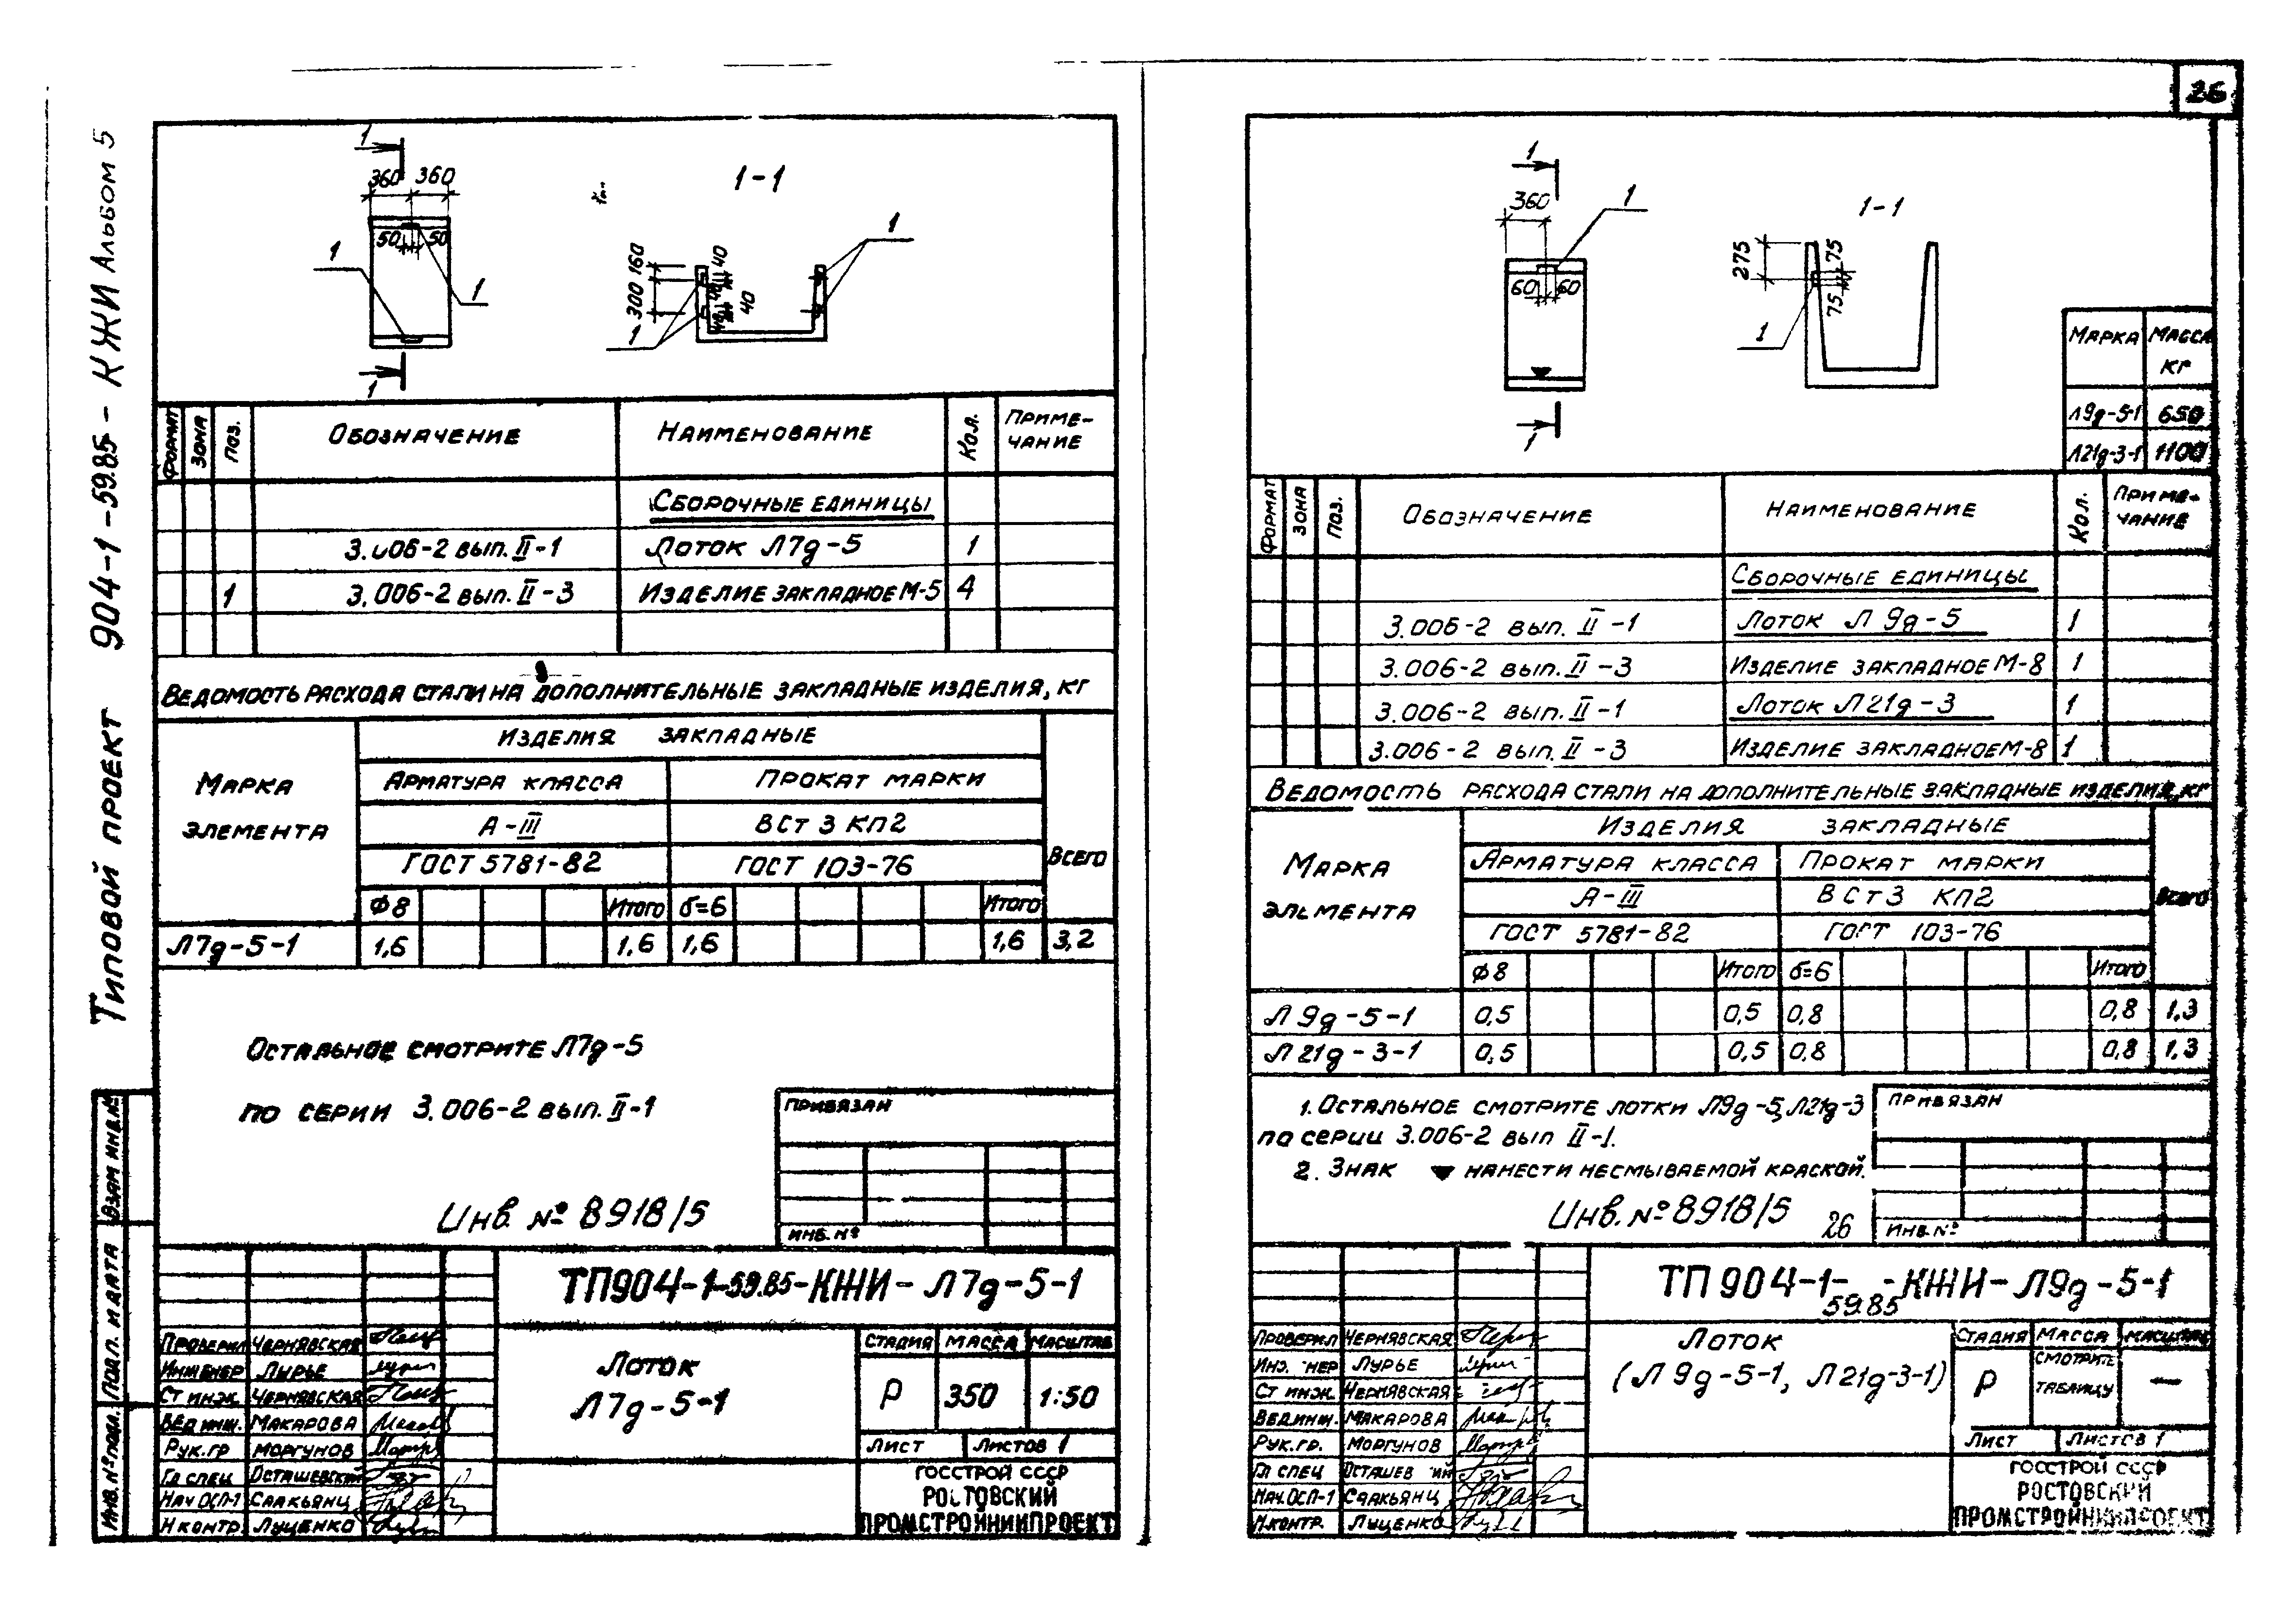 26
Типовой проект 904-1-59.85 - КЖИ Альбом 5
Взам инв.№
Подп. и дата
Инв.№ подл.
1
360 360
50 50
1
1
1
1-1
1
160
300
40
40
40
1
Формат Зона Поз. Обозначение Наименование Кол. Приме-
чание
Сборочные единицы
3.006-2 вып. II-1 Лоток Л7д-5 1
1 3.006-2 вып. II-3 Изделие закладное М-5 4
Ведомость расхода стали на дополнительные закладные изделия, кг
Марка
элемента
Изделия закладные
Арматура класса Прокат марки
А-III ВСт 3 кп2
ГОСТ 5781-82 ГОСТ 103-76
Всего
Ф8 Итого б=6 Итого
Л7д-5-1 1,6 1,6 1,6 1,6 3,2
Остальное смотрите Л7д-5
по серии 3.006-2 вып. II-1
Привязан
Инв. №
Инв. № 8918/5
ТП904-1-59.85-КЖИ-Л7д-5-1
Проверил Чернявская
Инженер Лурье
Ст инж. Чернявская
Вед инж. Макарова
Рук.гр Моргунов
Гл спец Осташевский
Нач ОСП-1 Саакьянц
Н контр. Луценко
Лоток
Л7д-5-1
Стадия Масса Масштаб
Р 350 1:50
Лист Листов 1
Госстрой СССР
Ростовский
ПРОМСТРОЙНИИПРОЕКТ
1
360
1
60 60
1
1-1
275
75
75
1
Марка Масса
кг
Л9д-5-1 650
Л21д-3-1 1100
Формат Зона Поз. Обозначение Наименование Кол. Приме-
чание
Сборочные единицы
3.006-2 вып. II-1 Лоток Л 9д-5 1
3.006-2 вып. II-3 Изделие закладное М-8 1
3.006-2 вып. II-1 Лоток Л 21д-3 1
3.006-2 вып. II-3 Изделие закладное М-8 1
Ведомость расхода стали на дополнительные закладные изделия, кг
Марка
элемента
Изделия закладные
Арматура класса Прокат марки
А-III ВСт3 кп2
ГОСТ 5781-82 ГОСТ 103-76
Всего
Ф8 Итого б=6 Итого
Л 9д-5-1 0,5 0,5 0,8 0,8 1,3
Л 21д-3-1 0,5 0,5 0,8 0,8 1,3
1. Остальное смотрите лотки Л9д-5, Л21д-3
по серии 3.006-2 вып II-1.
2. Знак ▼ нанести несмываемой краской.
Привязан
Инв. №
Инв. № 8918/5 26
ТП 904-1- -КЖИ-Л9д-5-1
59.85
Проверил Чернявская
Инж нер Лурье
Ст инж. Чернявская
Вед.инж. Макарова
Рук.гр. Моргунов
Гл спец Осташев ий
Нач.ОСП-1 Саакьянц
Н.контр. Луценко
Лоток
(Л 9д-5-1, Л 21д-3-1)
Стадия Масса Масштаб
Р Смотрите
таблицу —
Лист Листов 1
Госстрой СССР
Ростовский
ПРОМСТРОЙНИИПРОЕКТ